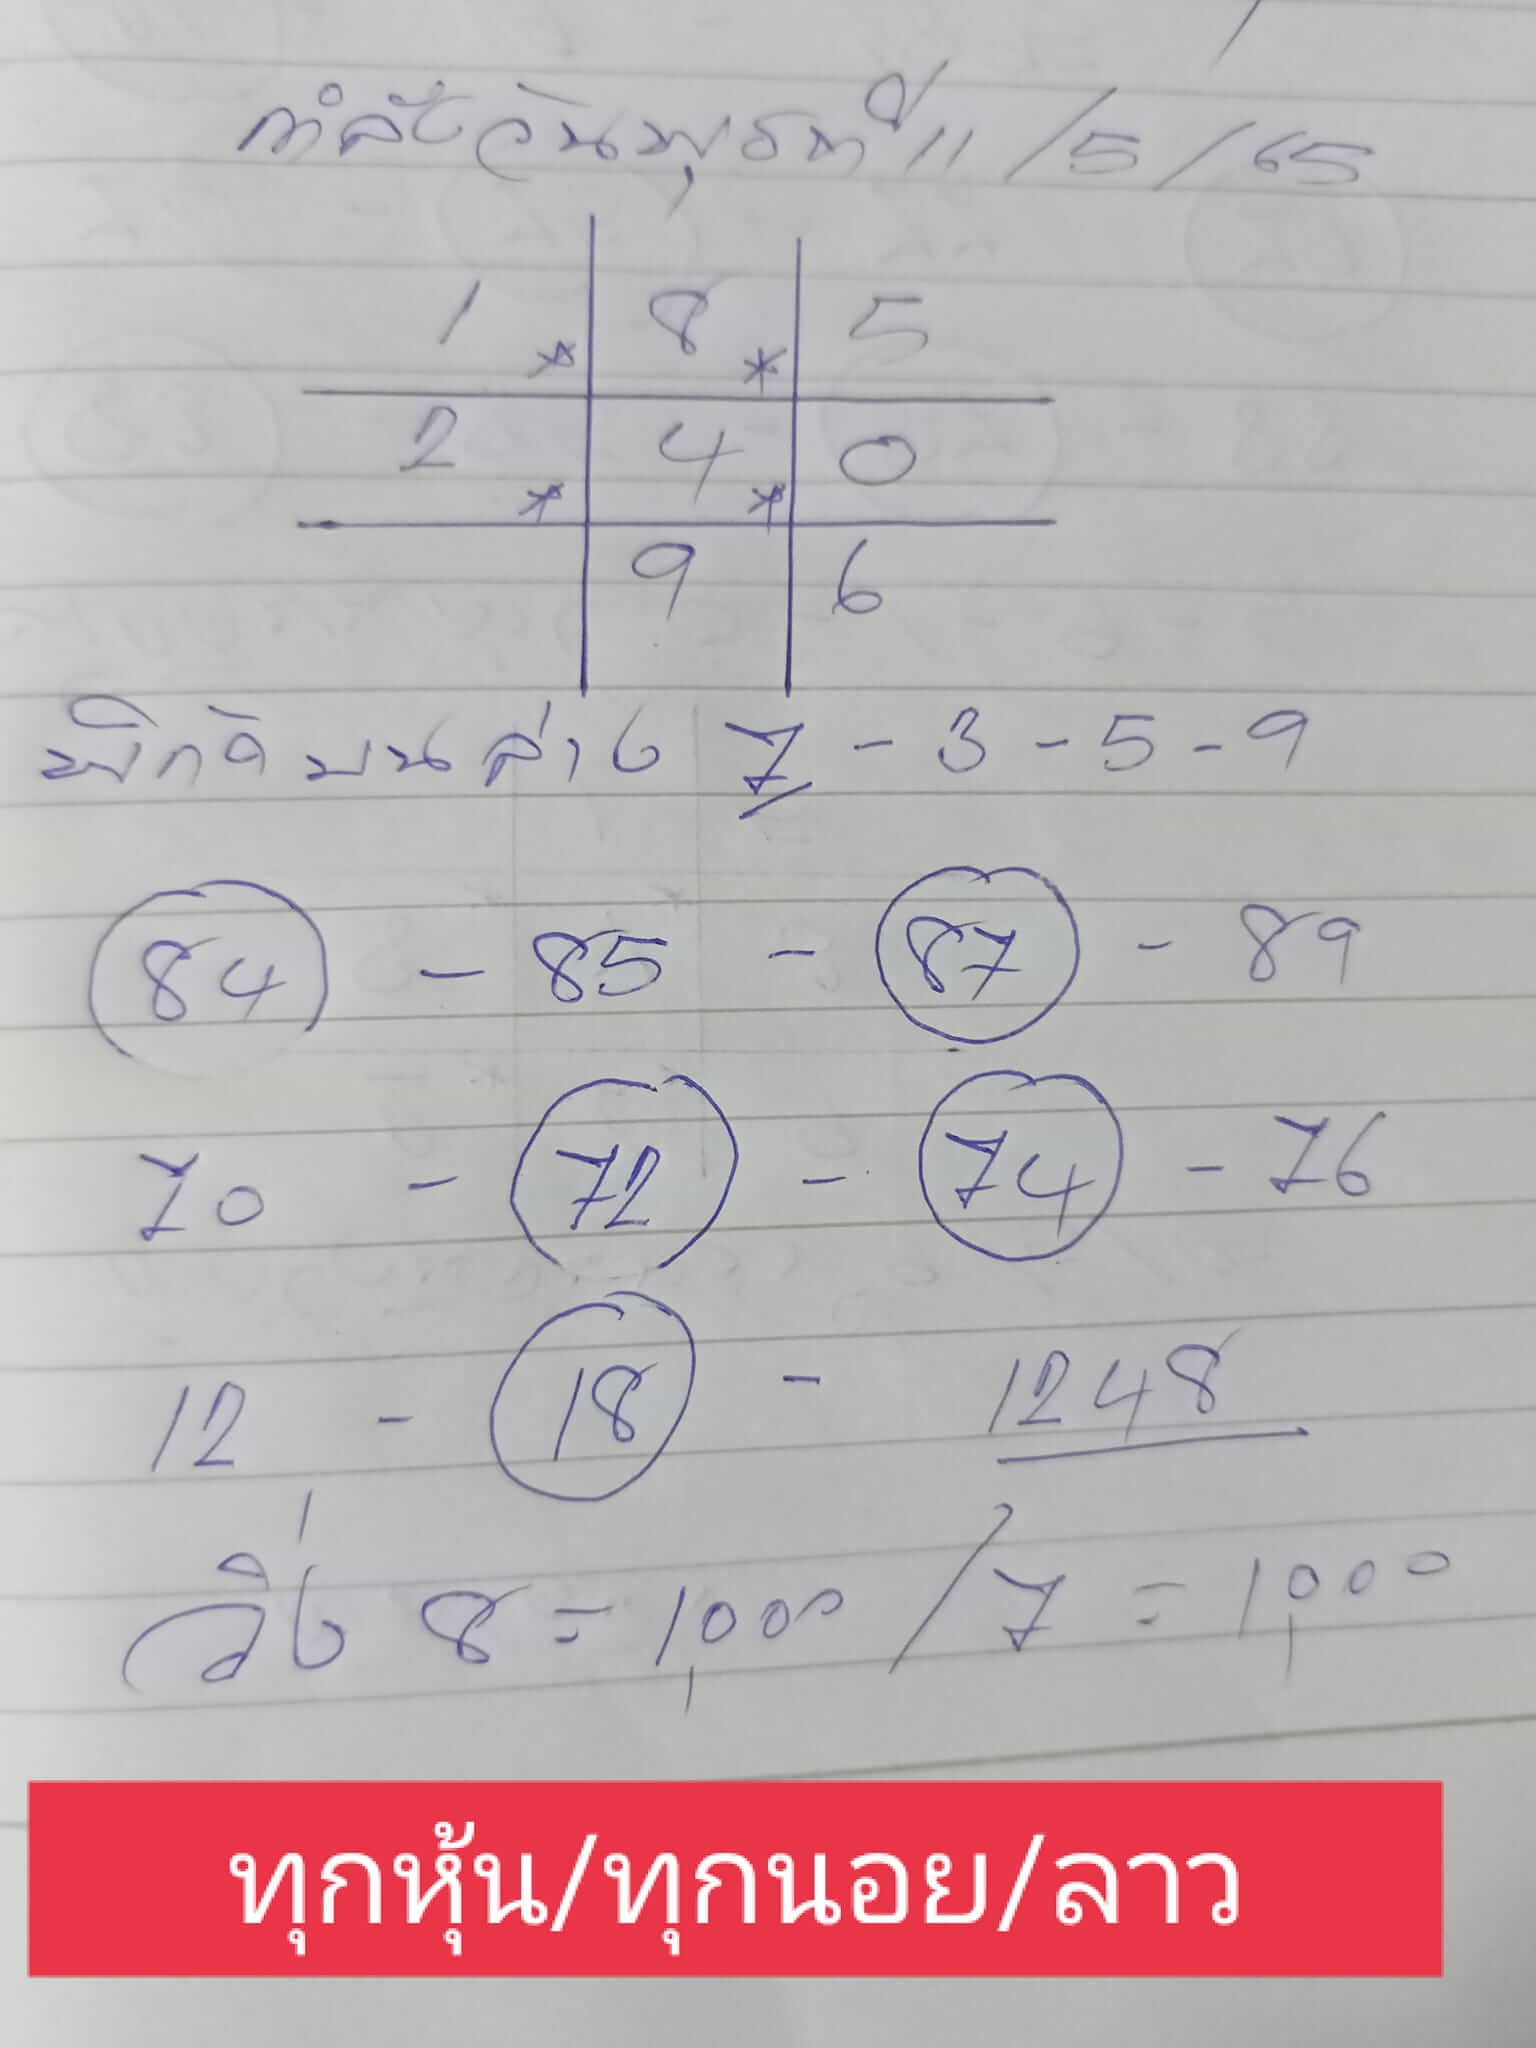 กำลังวันพุธที่ 11/5/65
1 * 8 * 5
2 * 4 * 0
9 6
พิกัด บน ล่าง 7 - 3 - 5 - 9
84 - 85 - 87 - 89
70 - 72 - 74 - 76
12 - 18 - 1248
วิ่ง 8 = 1,000 / 7 = 1,000
ทุกหุ้น/ทุกนอย/ลาว